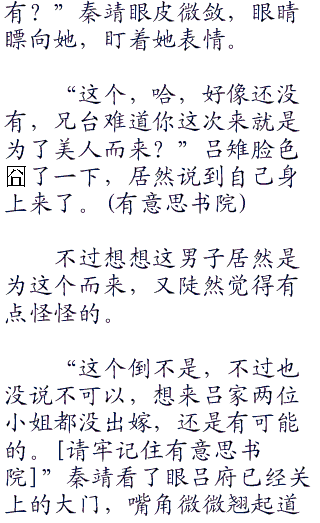 有？”秦靖眼皮微敛，眼睛
瞟向她，盯着她表情。
“这个，哈，好像还没
有，兄台难道你这次来就是
为了美人而来？”吕雉脸色
囧了一下，居然说到自己身
上来了。(有意思书院)
不过想想这男子居然是
为这个而来，又陡然觉得有
点怪怪的。
“这个倒不是，不过也
没说不可以，想来吕家两位
小姐都没出嫁，还是有可能
的。[请牢记住有意思书
院]”秦靖看了眼吕府已经关
上的大门，嘴角微微翘起道